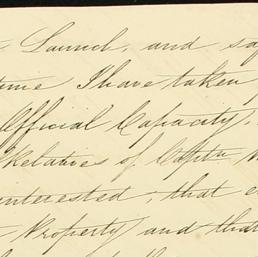 Launch, and sa
time I have taken
Official Capacity.
Relatives of Captn
interested; that e
Property and that